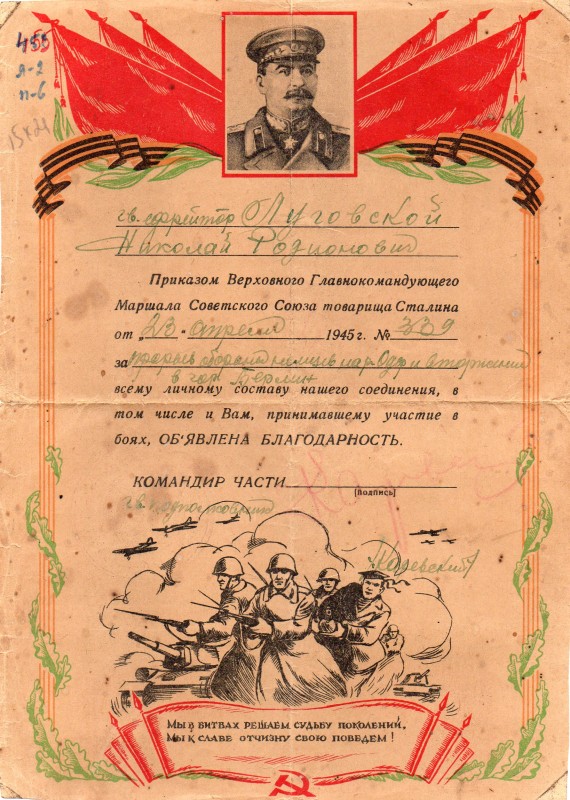 455
Я-2
П-6
15х21
гв. ефрейтор Луговской
Николай Родионович
Приказом Верховного Главнокомандующего
Маршала Советского Союза товарища Сталина
от „23 апреля 1945 г. № 339
за прорыв обороны немцев на р. Одер и вторжение
в гор. Берлин
всему личному составу нашего соединения, в
том числе и Вам, принимавшему участие в
боях, ОБ'ЯВЛЕНА БЛАГОДАРНОСТЬ.
КОМАНДИР ЧАСТИ
(подпись)
гв. подполковник
МЫ В БИТВАХ РЕШАЕМ СУДЬБУ ПОКОЛЕНИЙ,
МЫ К СЛАВЕ ОТЧИЗНУ СВОЮ ПОВЕДЕМ!